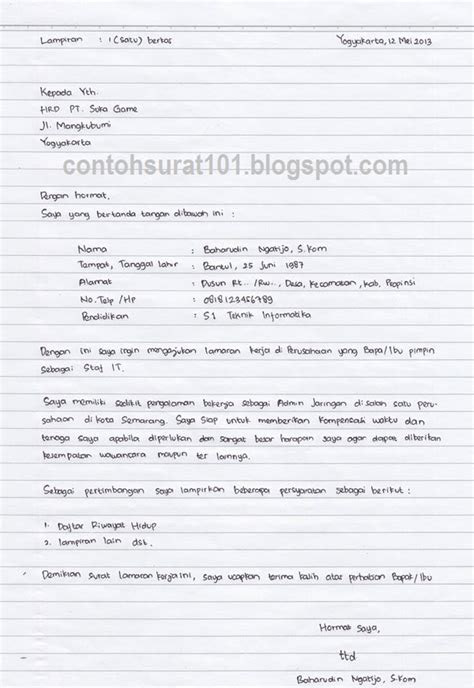 Lampiran : 1 (satu) berkas
Yogyakarta, 12 Mei 2013
Kepada Yth.
HRD PT. Suka Game
Jl. Mangkubumi
Yogyakarta
contohsurat101.blogspot.com
Dengan hormat,
Saya yang bertanda tangan dibawah ini :
Nama : Baharudin Ngatijo, S.Kom
Tempat, Tanggal lahir : Bantul, 25 Juni 1987
Alamat : Dusun Rt.. /Rw.., Desa, Kecamatan, Kab, Propinsi
No. Telp /HP : 0818123456789
Pendidikan : S1 Teknik Informatika
Dengan ini saya ingin mengajukan lamaran kerja di Perusahaan yang Bapa/Ibu pimpin
sebagai Staf IT.
Saya memiliki sedikit pengalaman bekerja sebagai Admin Jaringan di salah satu peru-
sahaan di kota Semarang. Saya siap untuk memberikan kompensasi waktu dan
tenaga saya apabila diperlukan dan sangat besar harapan saya agar dapat diberikan
kesempatan wawancara maupun tes lainnya.
Sebagai pertimbangan saya lampirkan beberapa persyaratan sebagai berikut :
1. Daftar Riwayat Hidup
2. lampiran lain dst.
Demikian surat lamaran kerja ini, saya ucapkan terima kasih atas perhatian Bapak/Ibu
Hormat Saya,
ttd
Baharudin Ngatijo, S.Kom